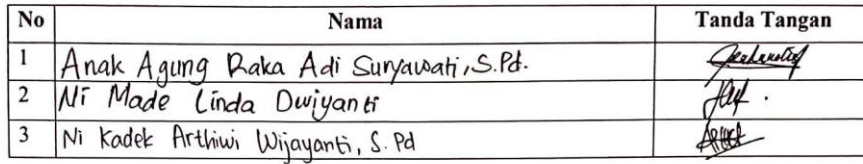 No Nama Tanda Tangan
1 Anak Agung Raka Adi Suryawati, S.Pd.
2 Ni Made Linda Dwiyanti
3 Ni Kadek Arthiwi Wijayanti, S.Pd